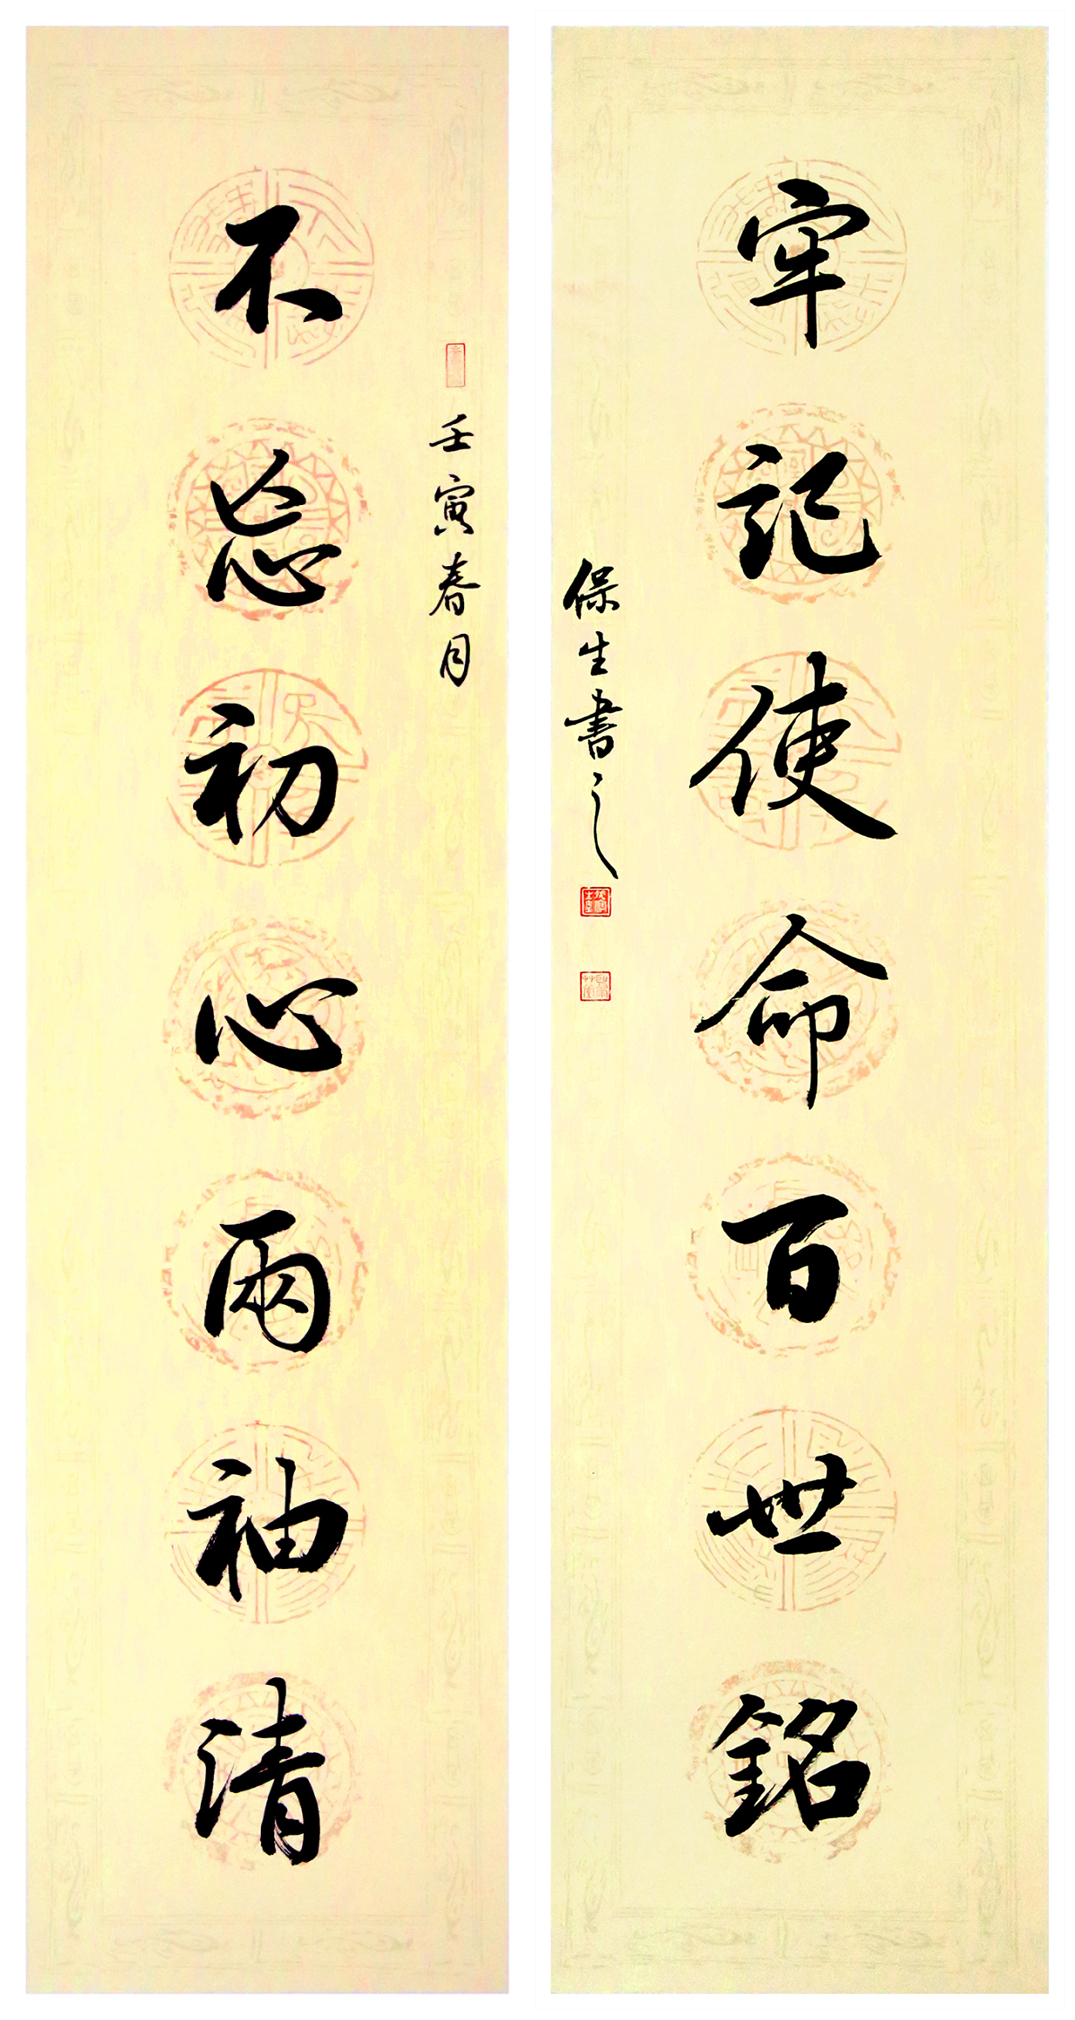 牢記使命百世銘
保生書之
壬寅春月
不忘初心兩袖清